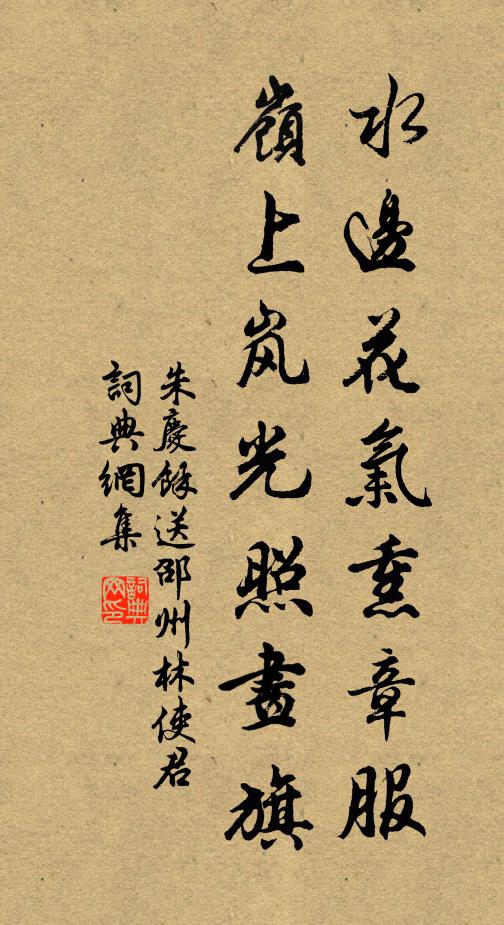 水邊花氣熏章服
嶺上岚光照畫旗
朱慶餘送邵州林使君
詞典網集
詞典网印